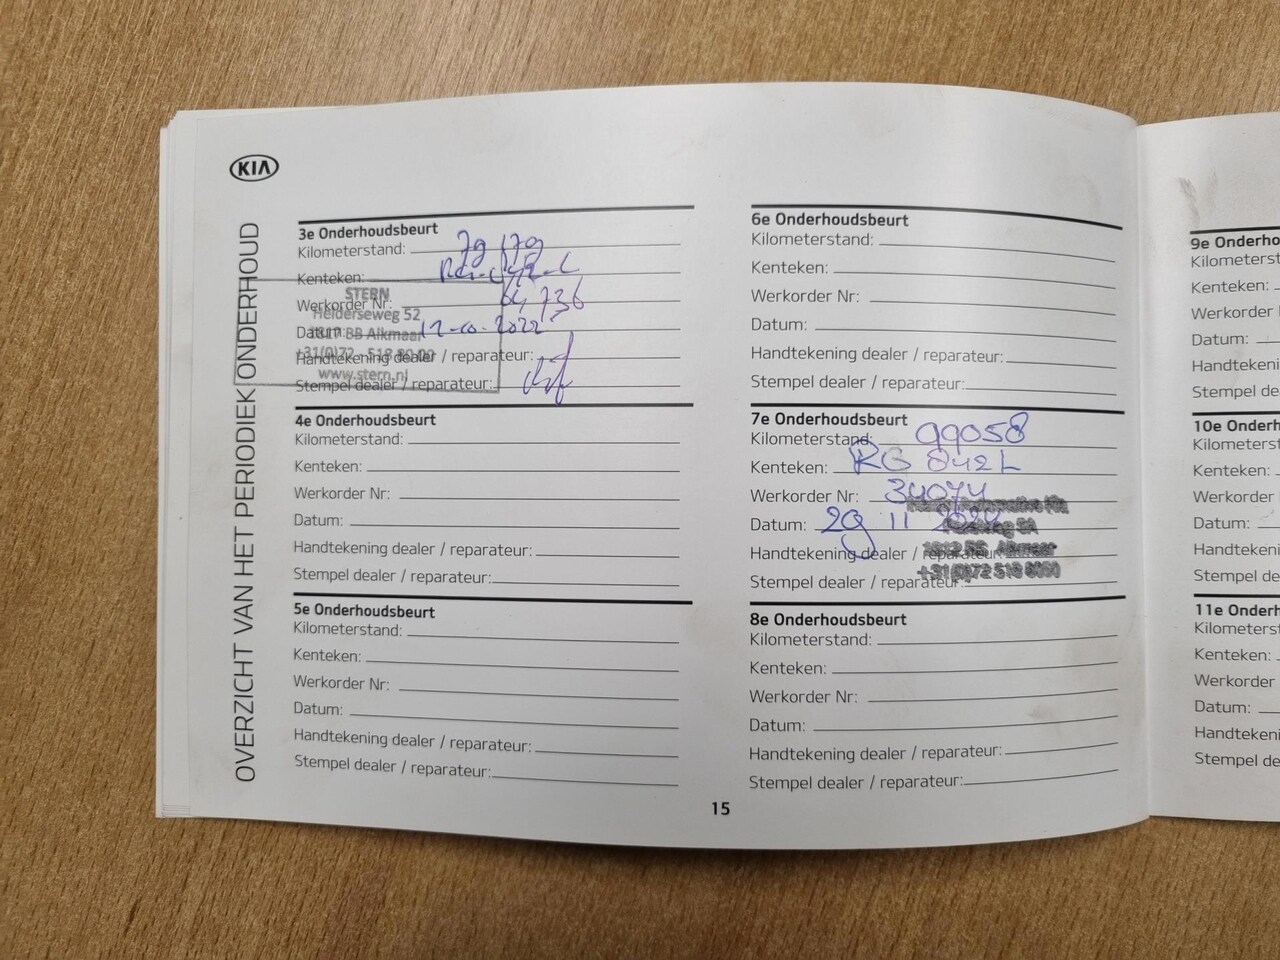 KIA
OVERZICHT VAN HET PERIODIEK ONDERHOUD
3e Onderhoudsbeurt
Kilometerstand: 79 179
Kenteken:
Werkorder Nr: 64736
Datum: 12-10-2022
Handtekening dealer / reparateur:
Stempel dealer / reparateur:
STERN
Helderseweg 52
1817 BB Alkmaar
+31(0)72 - 518 80 00
www.stern.nl
4e Onderhoudsbeurt
Kilometerstand:
Kenteken:
Werkorder Nr:
Datum:
Handtekening dealer / reparateur:
Stempel dealer / reparateur:
5e Onderhoudsbeurt
Kilometerstand:
Kenteken:
Werkorder Nr:
Datum:
Handtekening dealer / reparateur:
Stempel dealer / reparateur:
6e Onderhoudsbeurt
Kilometerstand:
Kenteken:
Werkorder Nr:
Datum:
Handtekening dealer / reparateur:
Stempel dealer / reparateur:
7e Onderhoudsbeurt
Kilometerstand: 99058
Kenteken: RG 842 L
Werkorder Nr: 34074
Datum: 29 11 2024
Handtekening dealer / reparateur:
Stempel dealer / reparateur:
Alkmaar
8e Onderhoudsbeurt
Kilometerstand:
Kenteken:
Werkorder Nr:
Datum:
Handtekening dealer / reparateur:
Stempel dealer / reparateur:
15
9e Onderho
Kilometerst
Kenteken:
Werkorder
Datum:
Handtekeni
Stempel de
10e Onderh
Kilometerst
Kenteken:
Werkorder
Datum:
Handtekeni
Stempel de
11e Onderh
Kilometerst
Kenteken:
Werkorder
Datum:
Handtekeni
Stempel de